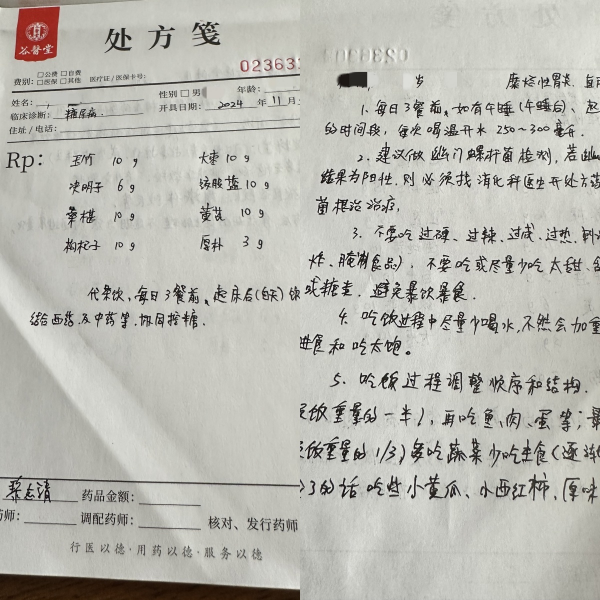 谷醫堂
处方笺
023633
费别：□公费 □自费
□医保 □其他 医疗证/医保卡号：
姓名： 性别 □男 年龄：
临床诊断：糖尿病. 开具日期：2024年11月
住址/电话：
Rp：
玉竹 10g 大枣 10g
决明子 6g 绞股蓝 10g
桑椹 10g 黄芪 10g
枸杞子 10g 厚朴 3g
代茶饮，每日3餐前、起床后(白天)
结合西药及中药等，协同控糖.
药品金额：
药师： 调配药师： 核对、发行药师
行医以德·用药以德·服务以德
岁 糜烂性胃炎.
1. 每日3餐前、如有午睡(午睡后)、起
的时间段，每次喝温开水250～300毫升.
2. 建议做幽门螺杆菌检测，若幽
结果为阳性，则必须找消化科医生开处方
菌根治治疗，
3. 不要吃过硬、过辣、过咸、过热、刺
炸、腌制食品)，不要吃或尽量少吃太甜、
或糖尘，避免暴饮暴食.
4. 吃饭过程中尽量少喝水，不然会加重
进食和吃太饱.
5. 吃饭过程调整顺序和结构.
饭重量的一半)，再吃鱼、肉、蛋等；最
饭重量的1/3)多吃蔬菜少吃主食(逐渐
了的话吃些小黄瓜、小西红柿、原味